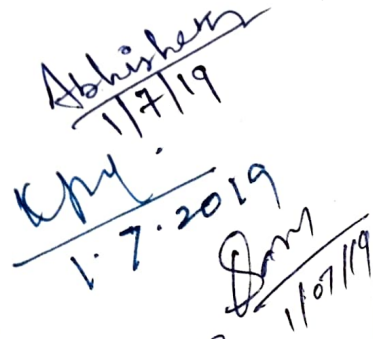 Abhishek
1/7/19
1.7.2019
1/07/19